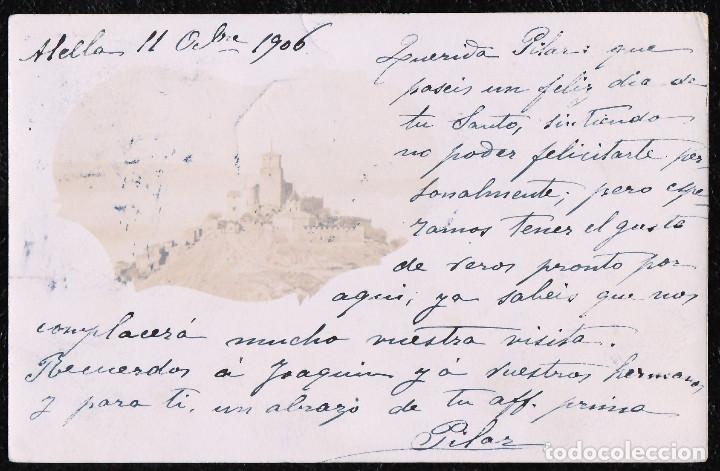 Alella 11 Obre 1906
Querida Pilar: que
paseis un feliz dia de
tu Santo, sintiendo
no poder felicitarte per
sonalmente; pero espe-
ramos tener el gusto
de veros pronto por
aqui, ya sabéis que nos
complacerá mucho vuestra visita.
Recuerdos á Joaquin y á vuestros hermanos
y para ti un abrazo de tu aff. prima
Pilar
todocoleccion.net